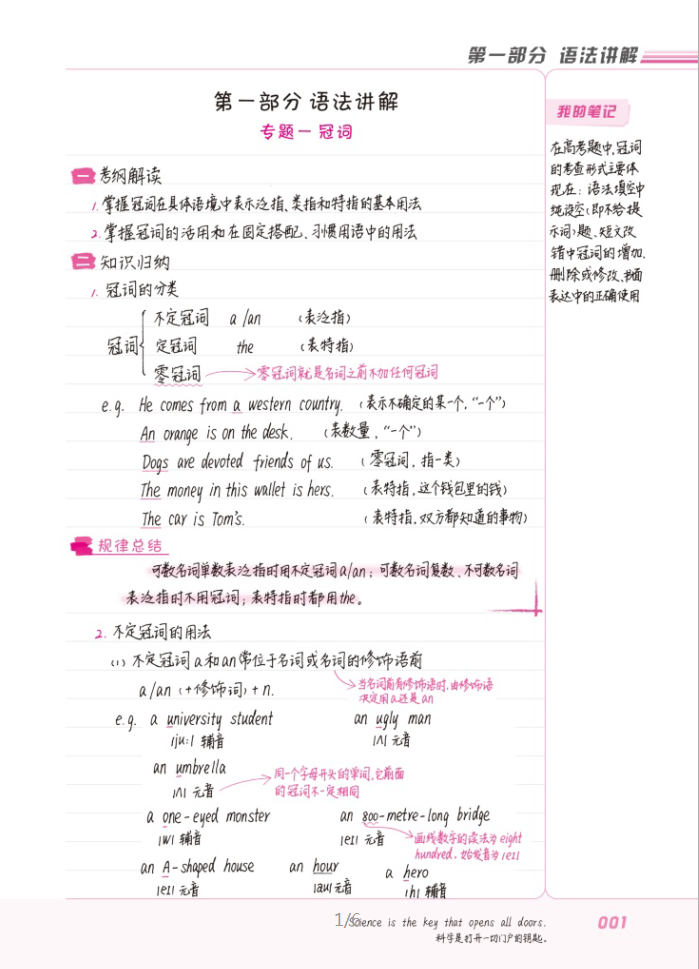 第一部分 语法讲解
第一部分 语法讲解
专题一 冠词
一 考纲解读
1. 掌握冠词在具体语境中表示泛指、类指和特指的基本用法
2. 掌握冠词的活用和在固定搭配、习惯用语中的用法
二 知识归纳
1. 冠词的分类
冠词
不定冠词 a/an (表泛指)
定冠词 the (表特指)
零冠词 零冠词就是名词之前不加任何冠词
e.g. He comes from a western country. (表示不确定的某一个,“一个”)
An orange is on the desk. (表数量,“一个”)
Dogs are devoted friends of us. (零冠词,指一类)
The money in this wallet is hers. (表特指,这个钱包里的钱)
The car is Tom's. (表特指,双方都知道的事物)
规律总结
可数名词单数表泛指时用不定冠词a/an;可数名词复数、不可数名词
表泛指时不用冠词;表特指时都用the。
2. 不定冠词的用法
(1) 不定冠词a和an常位于名词或名词的修饰语前
a/an (+修饰词)+n.
当名词前有修饰语时,由修饰语
决定用a还是an
e.g. a university student an ugly man
/juː/ 辅音 /ʌ/ 元音
an umbrella
/ʌ/ 元音
同一个字母开头的单词,它前面
的冠词不一定相同
a one-eyed monster an 800-metre-long bridge
/w/ 辅音 /eɪ/ 元音
画线数字的读法为eight
hundred、始发音为/eɪ/
an A-shaped house an hour a hero
/eɪ/ 元音 /aʊ/ 元音 /h/ 辅音
我的笔记
在高考题中,冠词
的考查形式主要体
现在:语法填空中
纯设空(即不给提
示词)题、短文改
错中冠词的增加、
删除或修改、书面
表达中的正确使用
1/6
Science is the key that opens all doors.
科学是打开一切门户的钥匙。
001